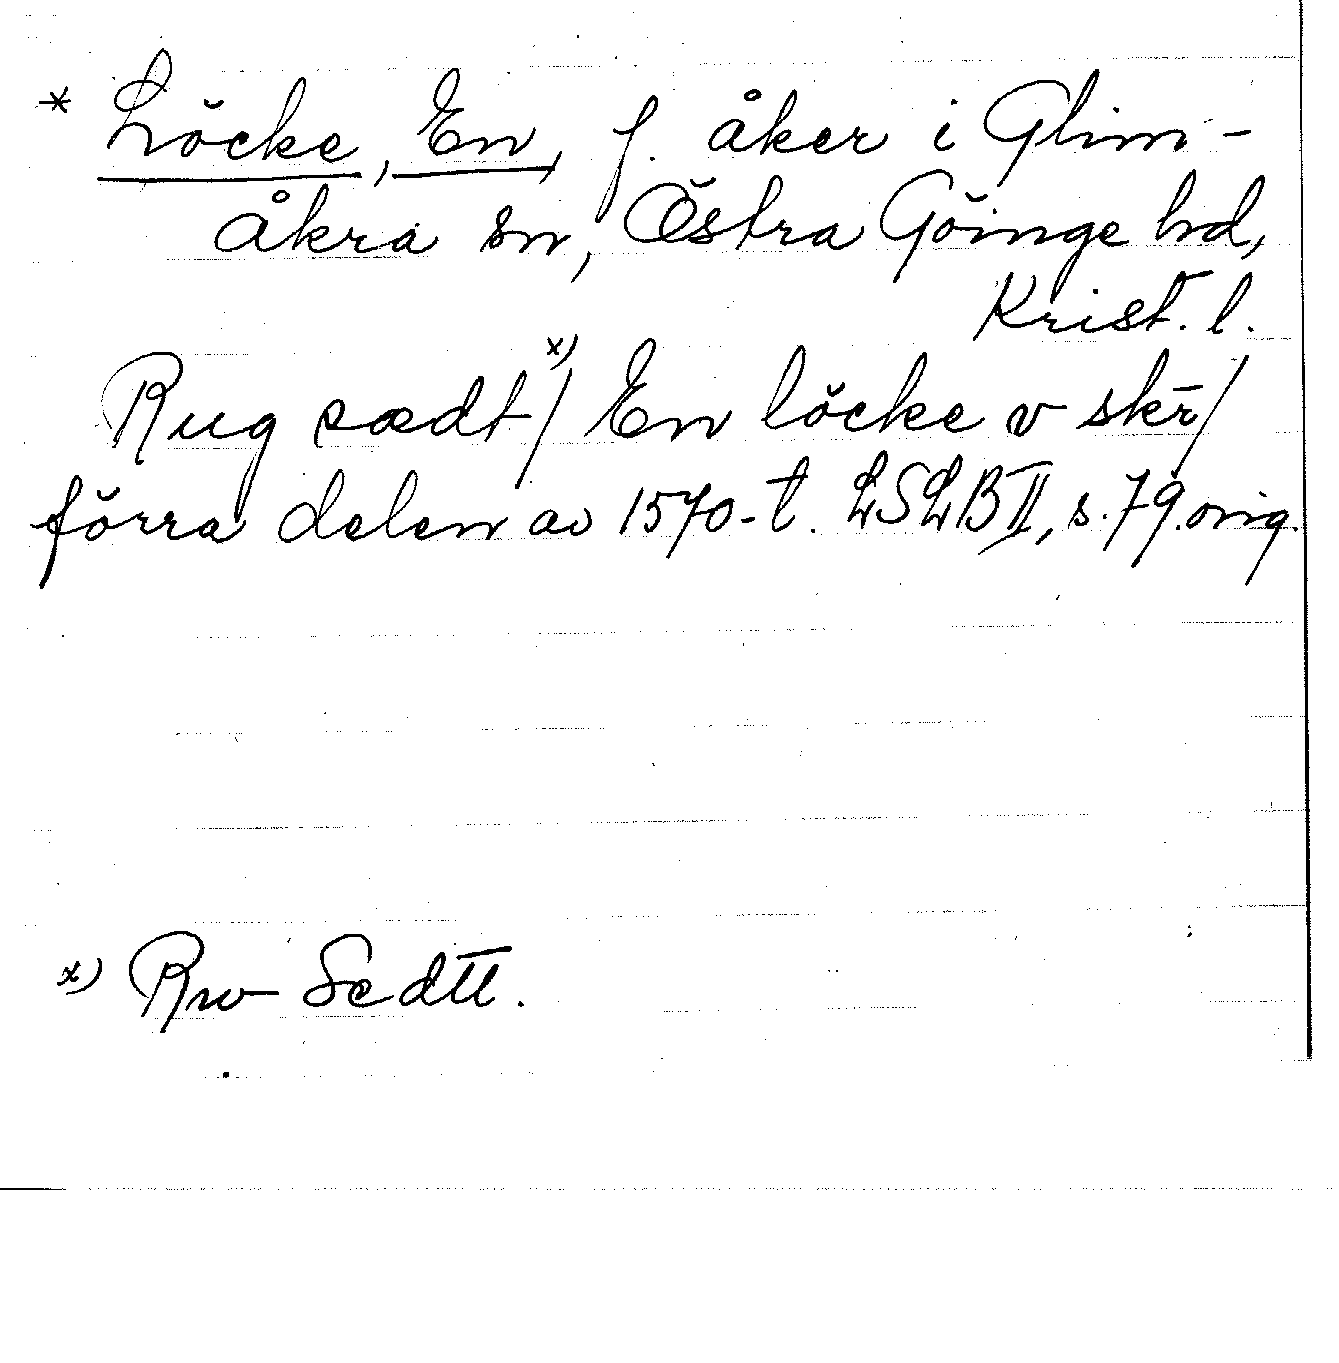 * Löcke, En, f. åker i Glim-
åkra sn, Östra Göinge hd,
Krist. l.
Rug sædt x) / En löcke v skr̄ /
förra delen av 1570-t. LSLB II, s. 79. orig.
x) Rw Sedtt.